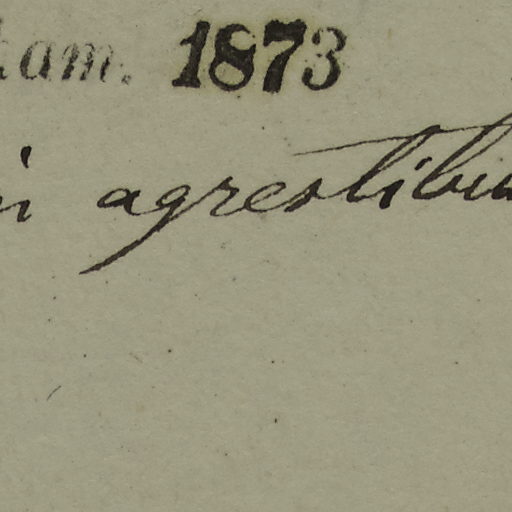 am. 1873
agrestibu